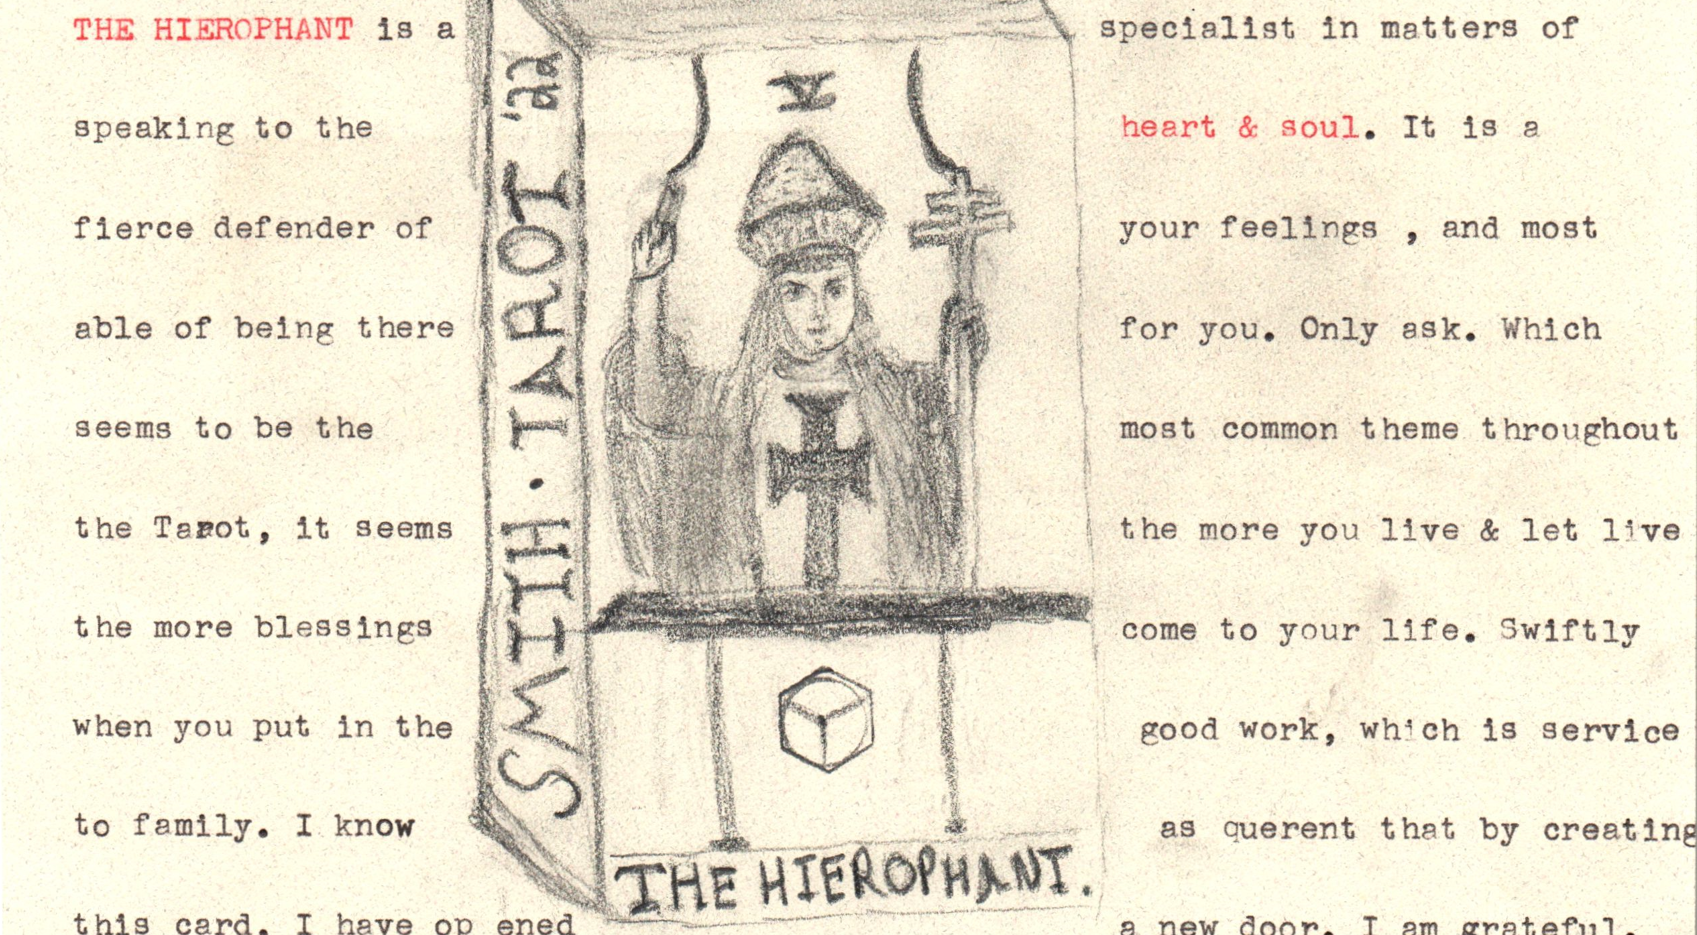 THE HIEROPHANT is a specialist in matters of
speaking to the heart & soul. It is a
fierce defender of your feelings , and most
able of being there for you. Only ask. Which
seems to be the most common theme throughout
the Tarot, it seems the more you live & let live
the more blessings come to your life. Swiftly
when you put in the good work, which is service
to family. I know as querent that by creating
this card, I have op ened a new door. I am grateful.
SMITH · TAROT '22
THE HIEROPHANT.